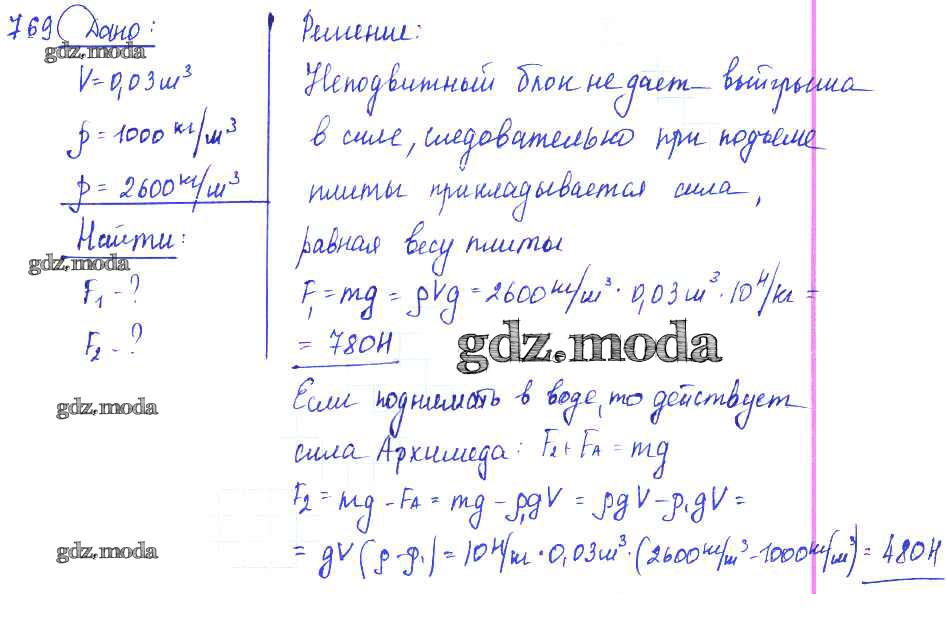 769 Дано:
gdz.moda
V = 0,03 м³
ρ = 1000 кг/м³
ρ = 2600 кг/м³
Найти:
gdz.moda
F₁ - ?
F₂ - ?
gdz.moda
gdz.moda
Решение:
Неподвижный блок не дает выйгрыша
в силе, следовательно при подъеме
плиты прикладывается сила,
равная весу плиты
F₁ = mg = ρVg = 2600 кг/м³ · 0,03 м³ · 10 Н/кг =
= 780Н
gdz.moda
Если поднимать в воде, то действует
сила Архимеда: F₂ + FА = mg
F₂ = mg - FА = mg - ρ₁gV = ρgV - ρ₁gV =
= gV (ρ - ρ₁) = 10 Н/кг · 0,03 м³ · (2600 кг/м³ - 1000 кг/м³) = 480Н